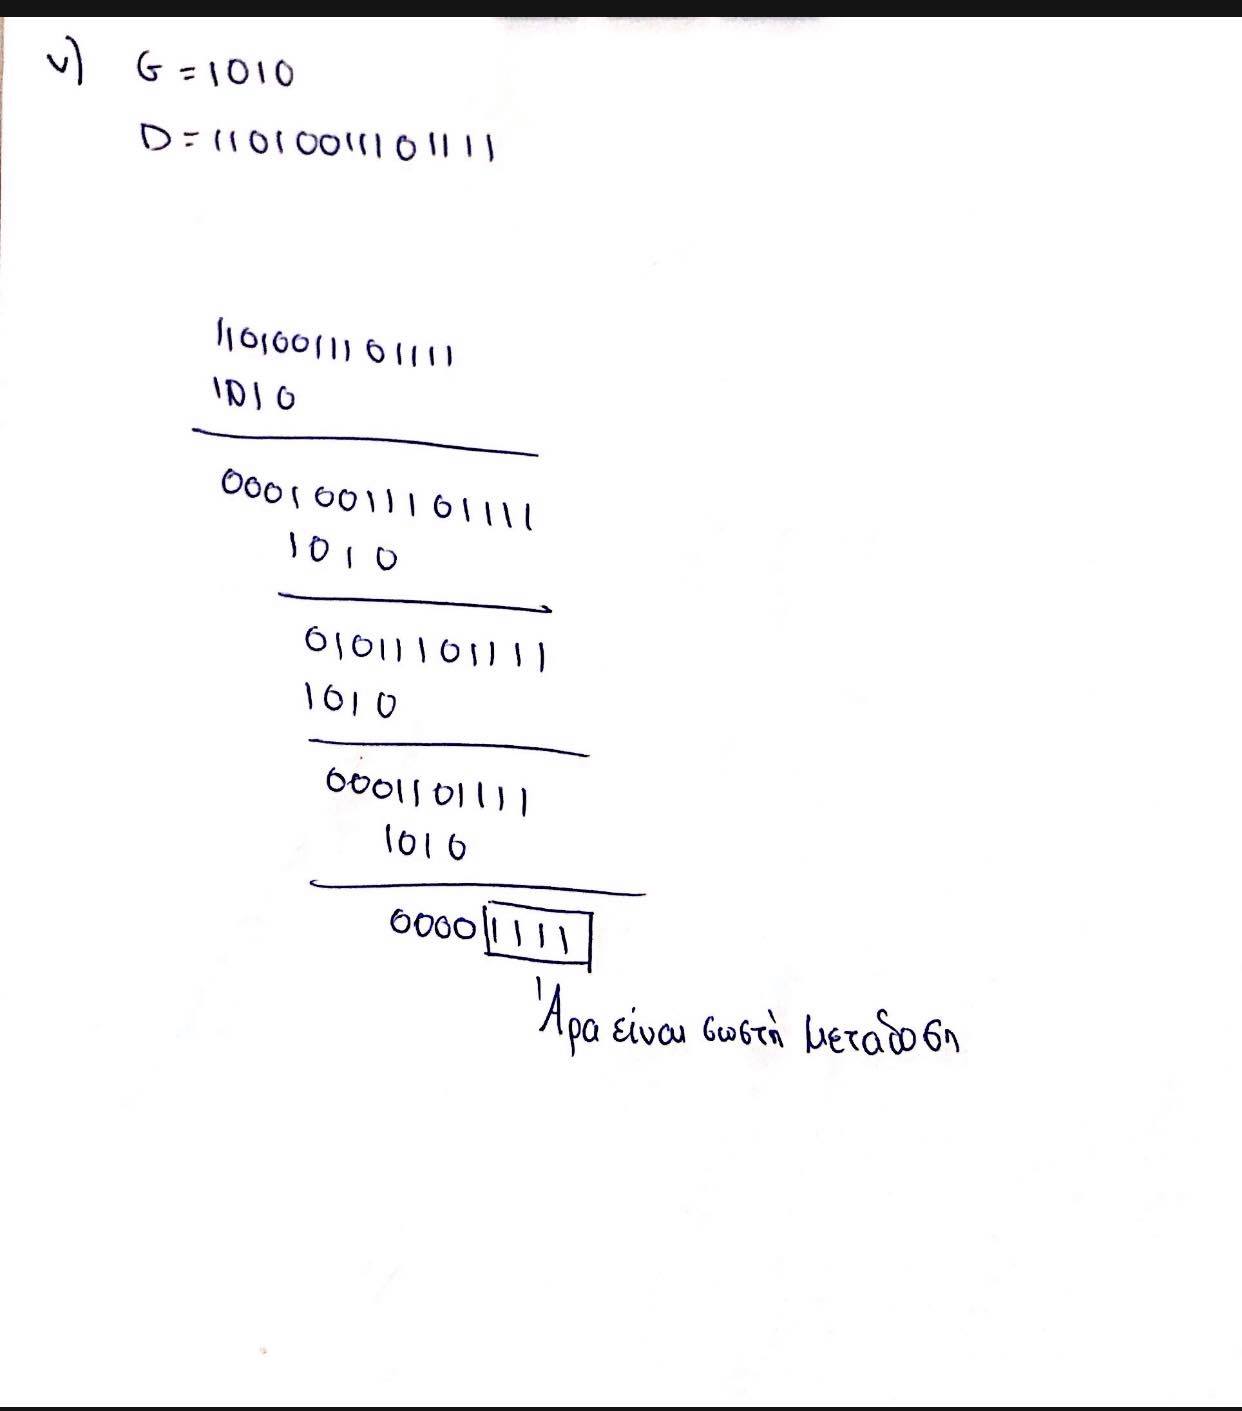 v) G = 1010
D = 11010011101111
11010011101111
1010
00010011101111
1010
01011101111
1010
0001101111
1010
00001111
Άρα είναι σωστή μεταδοση